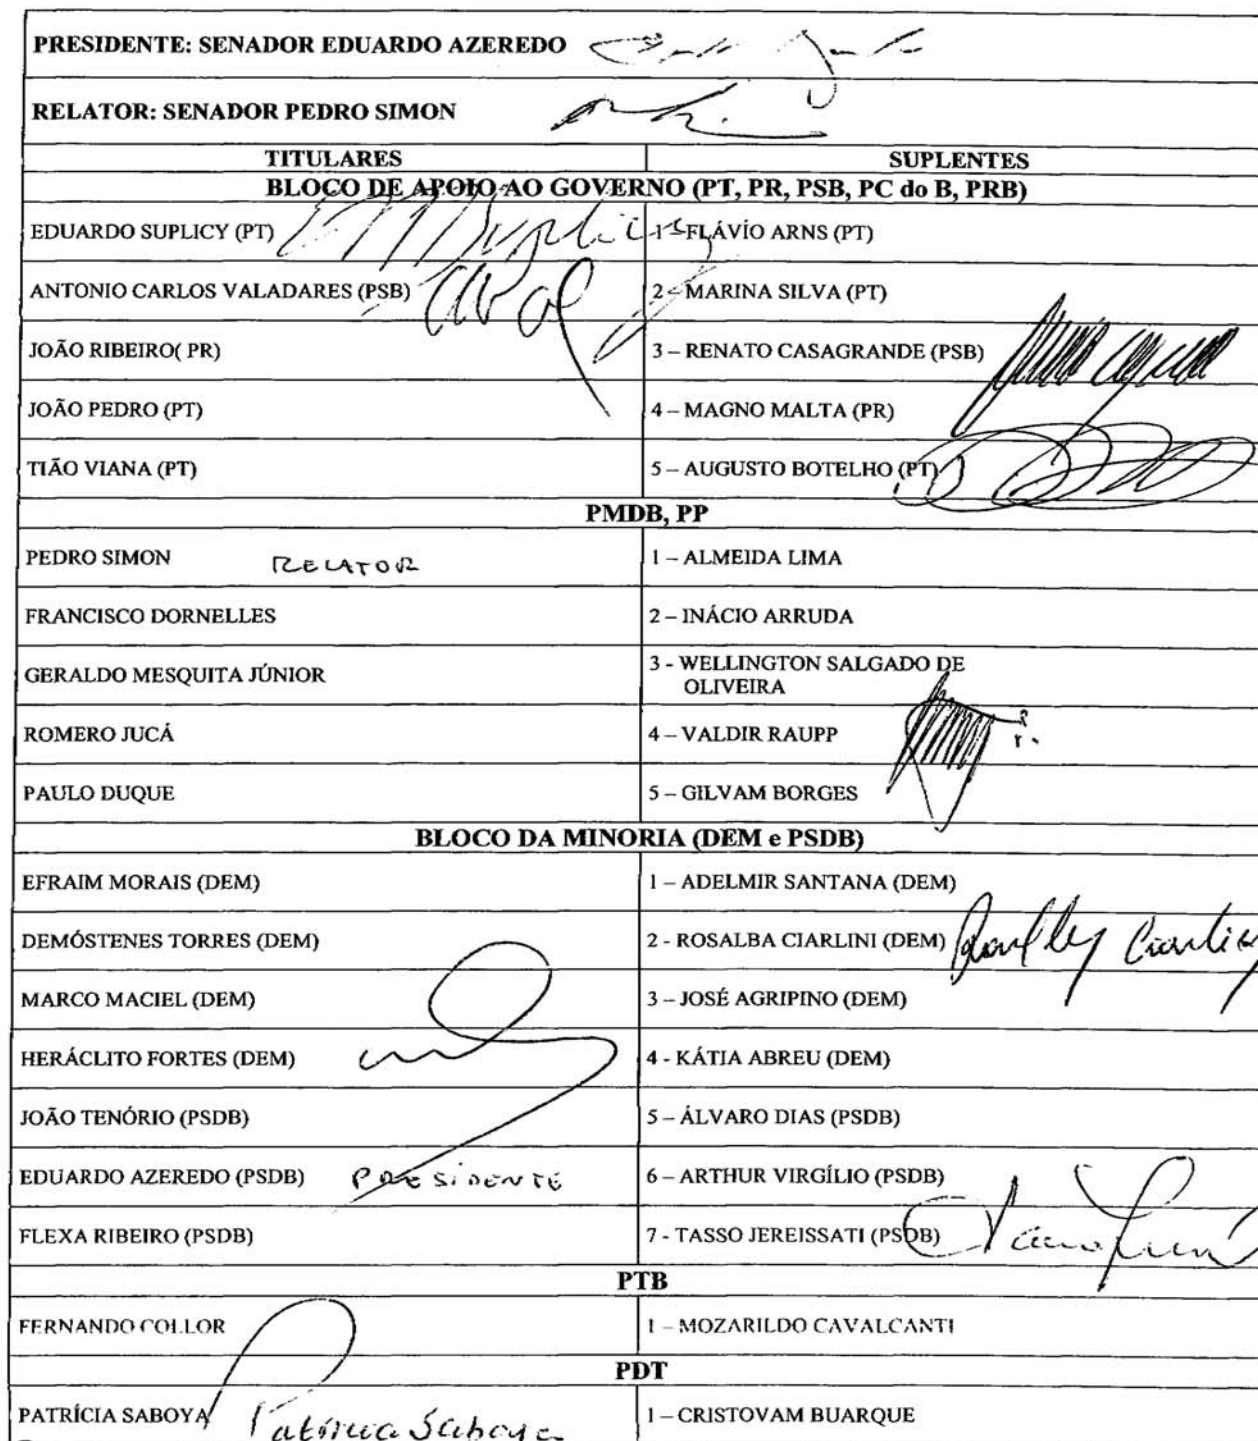 PRESIDENTE: SENADOR EDUARDO AZEREDO
RELATOR: SENADOR PEDRO SIMON
TITULARES SUPLENTES
BLOCO DE APOIO AO GOVERNO (PT, PR, PSB, PC do B, PRB)
EDUARDO SUPLICY (PT) 1 – FLÁVIO ARNS (PT)
ANTONIO CARLOS VALADARES (PSB) 2 – MARINA SILVA (PT)
JOÃO RIBEIRO( PR) 3 – RENATO CASAGRANDE (PSB)
JOÃO PEDRO (PT) 4 – MAGNO MALTA (PR)
TIÃO VIANA (PT) 5 – AUGUSTO BOTELHO (PT)
PMDB, PP
PEDRO SIMON RELATOR 1 – ALMEIDA LIMA
FRANCISCO DORNELLES 2 – INÁCIO ARRUDA
GERALDO MESQUITA JÚNIOR 3 - WELLINGTON SALGADO DE
OLIVEIRA
ROMERO JUCÁ 4 – VALDIR RAUPP
PAULO DUQUE 5 – GILVAM BORGES
BLOCO DA MINORIA (DEM e PSDB)
EFRAIM MORAIS (DEM) 1 – ADELMIR SANTANA (DEM)
DEMÓSTENES TORRES (DEM) 2 - ROSALBA CIARLINI (DEM)
MARCO MACIEL (DEM) 3 – JOSÉ AGRIPINO (DEM)
HERÁCLITO FORTES (DEM) 4 - KÁTIA ABREU (DEM)
JOÃO TENÓRIO (PSDB) 5 – ÁLVARO DIAS (PSDB)
EDUARDO AZEREDO (PSDB) PRESIDENTE 6 – ARTHUR VIRGÍLIO (PSDB)
FLEXA RIBEIRO (PSDB) 7 - TASSO JEREISSATI (PSDB)
PTB
FERNANDO COLLOR 1 – MOZARILDO CAVALCANTI
PDT
PATRÍCIA SABOYA Patrícia Saboya 1 – CRISTOVAM BUARQUE